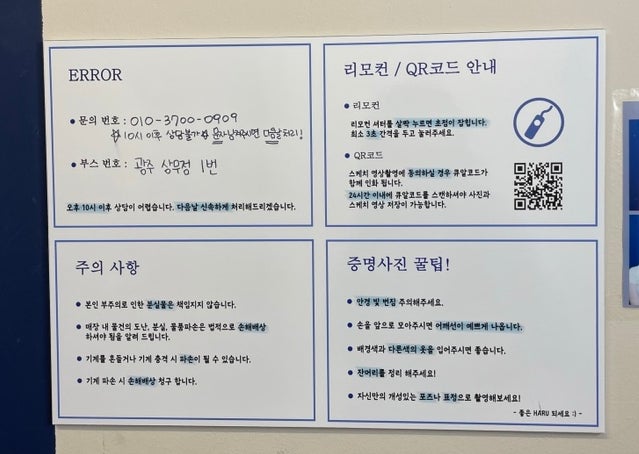 ERROR
• 문의 번호 : 010-3700-0909
☆ 10시 이후 상담불가 ☆ 문자남겨주시면 다음날처리!
• 부스 번호 : 광주 상무점 1번
오후 10시 이후 상담이 어렵습니다. 다음날 신속하게 처리해드리겠습니다.
리모컨 / QR코드 안내
• 리모컨
리모컨 셔터를 살짝 누르면 초점이 잡힙니다.
최소 3초 간격을 두고 눌러주세요.
• QR코드
스케치 영상촬영에 동의하실 경우 큐알코드가
함께 인화 됩니다.
24시간 이내에 큐알코드를 스캔하셔야 사진과
스케치 영상 저장이 가능합니다.
주의 사항
• 본인 부주의로 인한 분실물은 책임지지 않습니다.
• 매장 내 물건의 도난, 분실, 물품파손은 법적으로 손해배상
하셔야 됨을 알려 드립니다.
• 기계를 흔들거나 기계 충격 시 파손이 될 수 있습니다.
• 기계 파손 시 손해배상 청구 합니다.
증명사진 꿀팁!
• 안경 빛 번짐 주의해주세요.
• 손을 앞으로 모아주시면 어깨선이 예쁘게 나옵니다.
• 배경색과 다른색의 옷을 입어주시면 좋습니다.
• 잔머리를 정리 해주세요!
• 자신만의 개성있는 포즈나 표정으로 촬영해보세요!
- 좋은 HARU 되세요 :) -